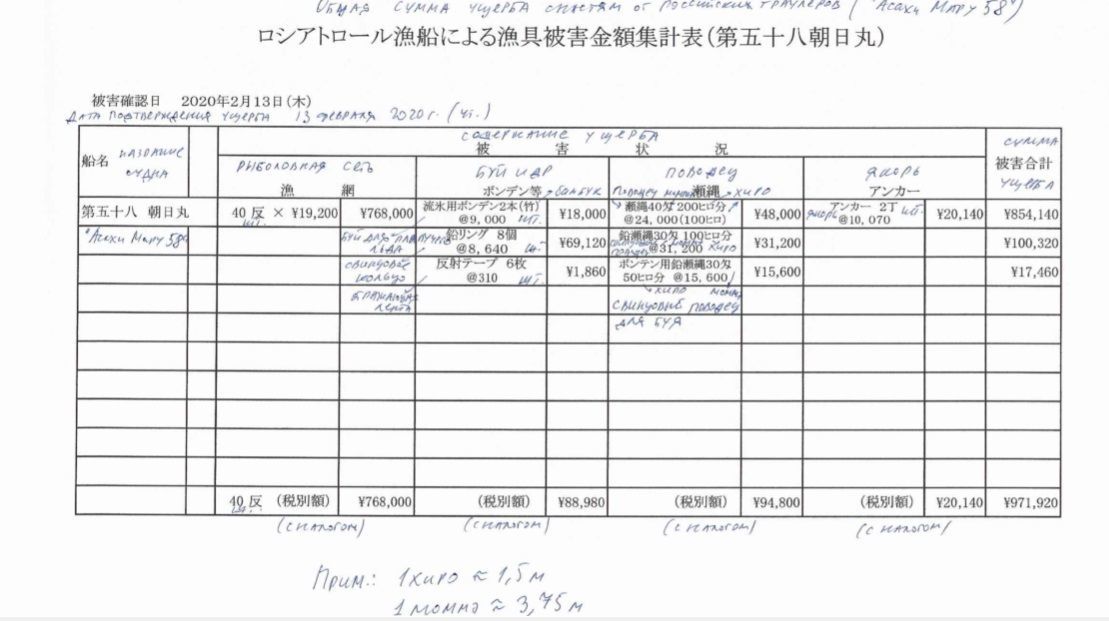 Общая сумма ущерба снастям от российских траулеров ("Асахи Мару 58")
ロシアトロール漁船による漁具被害金額集計表(第五十八朝日丸)
被害確認日 2020年2月13日(木)
Дата подтверждения ущерба 13 февраля 2020г. (чт.)
содержание ущерба
被害状況
船名 название судна
рыболовная сеть
漁網
буй и др
ボンデン等
поводец
瀬縄
якорь
アンカー
сумма
被害合計
ущерба
第五十八 朝日丸 40反 × ¥19,200 ¥768,000 流氷用ボンデン2本(竹) @9,000 шт. ¥18,000 瀬縄40匁 200ヒロ分 @24,000(100ヒロ) ¥48,000 якорь アンカー 2丁 @10,070 шт. ¥20,140 ¥854,140
"Асахи Мару 58" 鉛リング 8個 @8,640 шт. ¥69,120 鉛瀬縄30匁 100ヒロ分 @31,200 хиро ¥31,200 ¥100,320
свинцовое кольцо 反射テープ 6枚 @310 шт. ¥1,860 ボンテン用鉛瀬縄30匁 50ヒロ分 @15,600 ¥15,600 ¥17,460
лента
хиро момно
свинцовый поводец
для буя
40反 (税別額) ¥768,000 (税別額) ¥88,980 (税別額) ¥94,800 (税別額) ¥20,140 ¥971,920
шт.
(с налогом) (с налогом) (с налогом) (с налогом)
Прим.: 1 хиро ≈ 1,5 м
1 момно ≈ 3,75 м